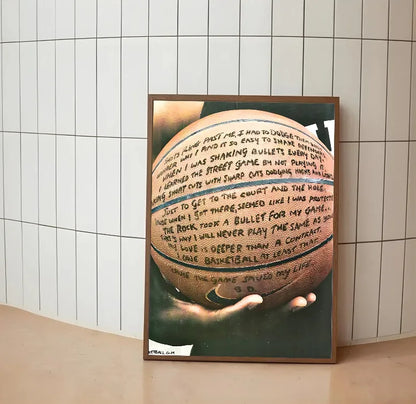 SHOTS RANG PAST ME, I HAD TO DODGE THEM
WONDER WHY I FIND IT SO EASY TO SHAKE DEFENDERS
WHEN I WAS SHAKING BULLETS EVERY DAY.
I LEARNED THE STREET GAME BY NOT PLAYING IT
SHORT CUTS WITH SHARP CUTS DODGING THICKS AND
JUST TO GET TO THE COURT AND THE HOLE
WHEN I GOT THERE, SEEMED LIKE I WAS PROTECTED
THE ROCK TOOK A BULLET FOR MY GAME..
THAT'S WHY I WILL NEVER PLAY THE SAME AS YOU
MY LOVE IS DEEPER THAN A CONTRACT.
I OWE BASKETBALL AT LEAST THAT.
'CAUSE THE GAME SAVED MY LIFE.
B.D.